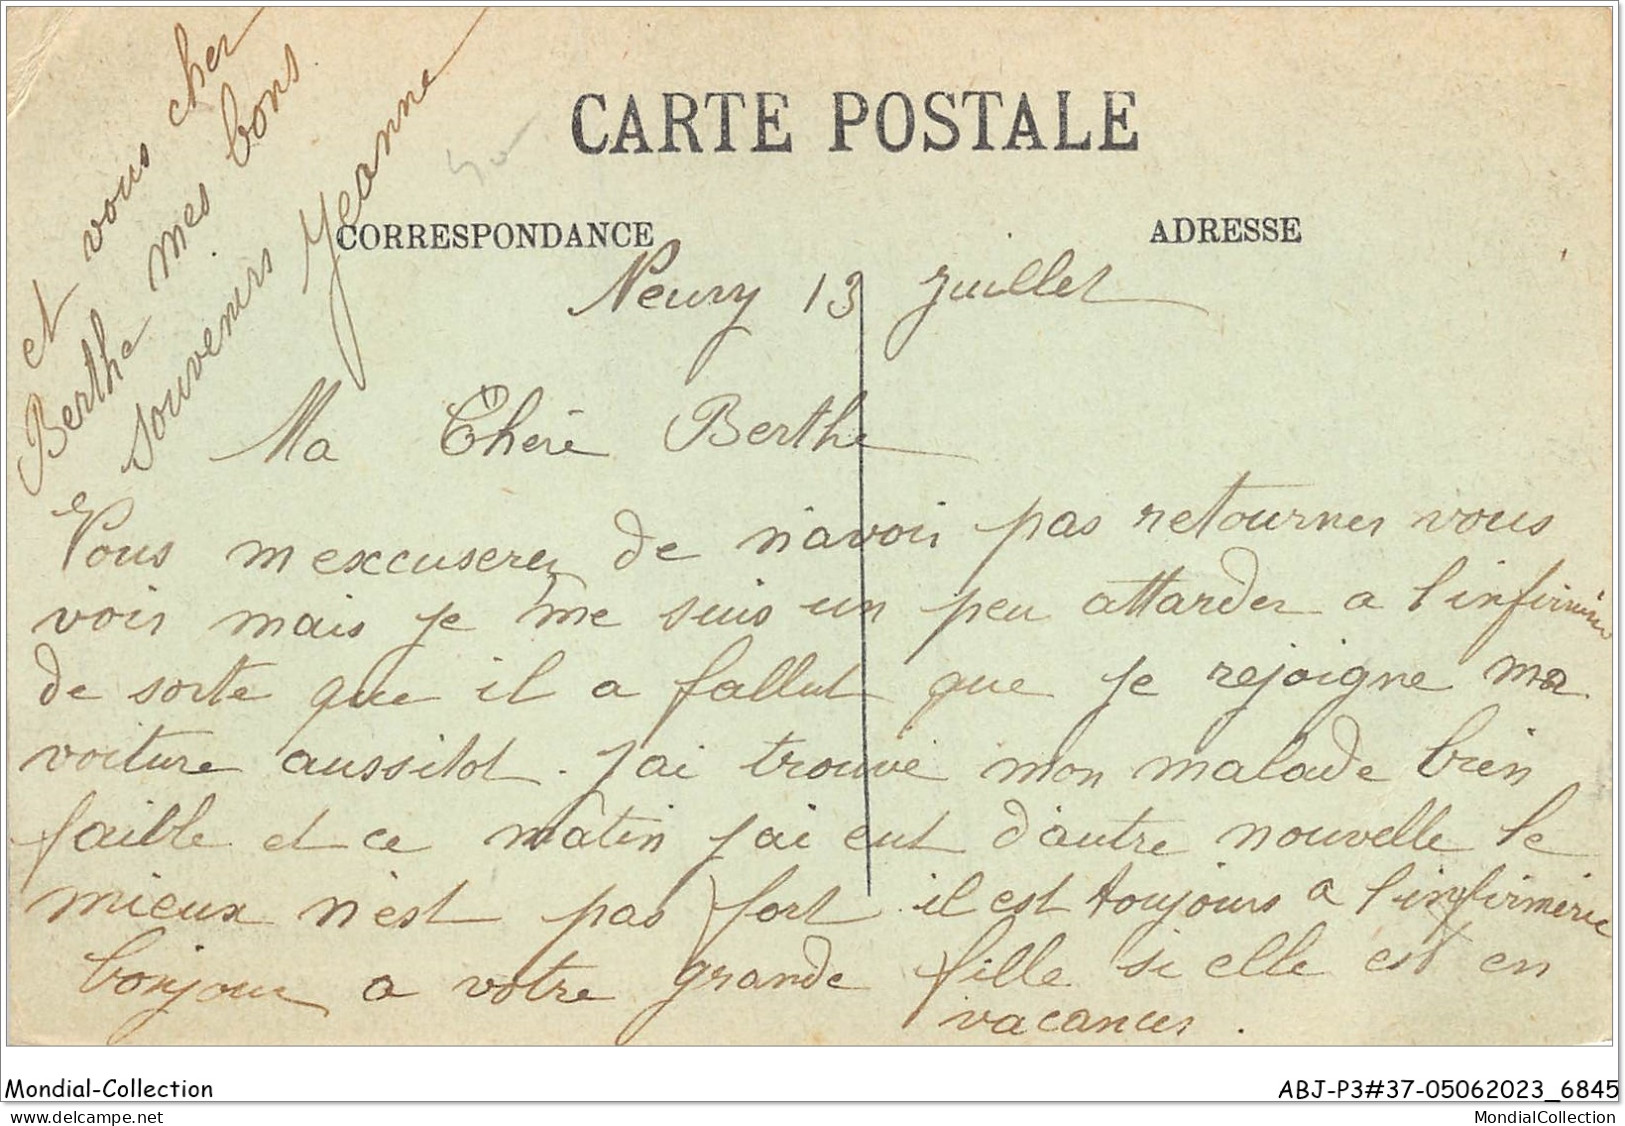 CARTE POSTALE
CORRESPONDANCE
ADRESSE
Neuvy 13 juillet
Ma Chère Berthe
Vous m excuserez de n'avoir pas retourner vous
voir mais je me suis un peu attarder a l'infirmerie
de sorte que il a fallut que je rejoigne ma
voiture aussitot. J'ai trouvé mon malade bien
faible et ce matin j'ai eut d'autre nouvelle le
mieux n'est pas fort il est toujours a l'infirmerie
bonjour a votre grande fille si elle est en
vacances.
et vous cher
Berthe mes bons
souvenirs Jeanne
Mondial-Collection
ABJ-P3#37-05062023_6845
delcampe.net
MondialCollection